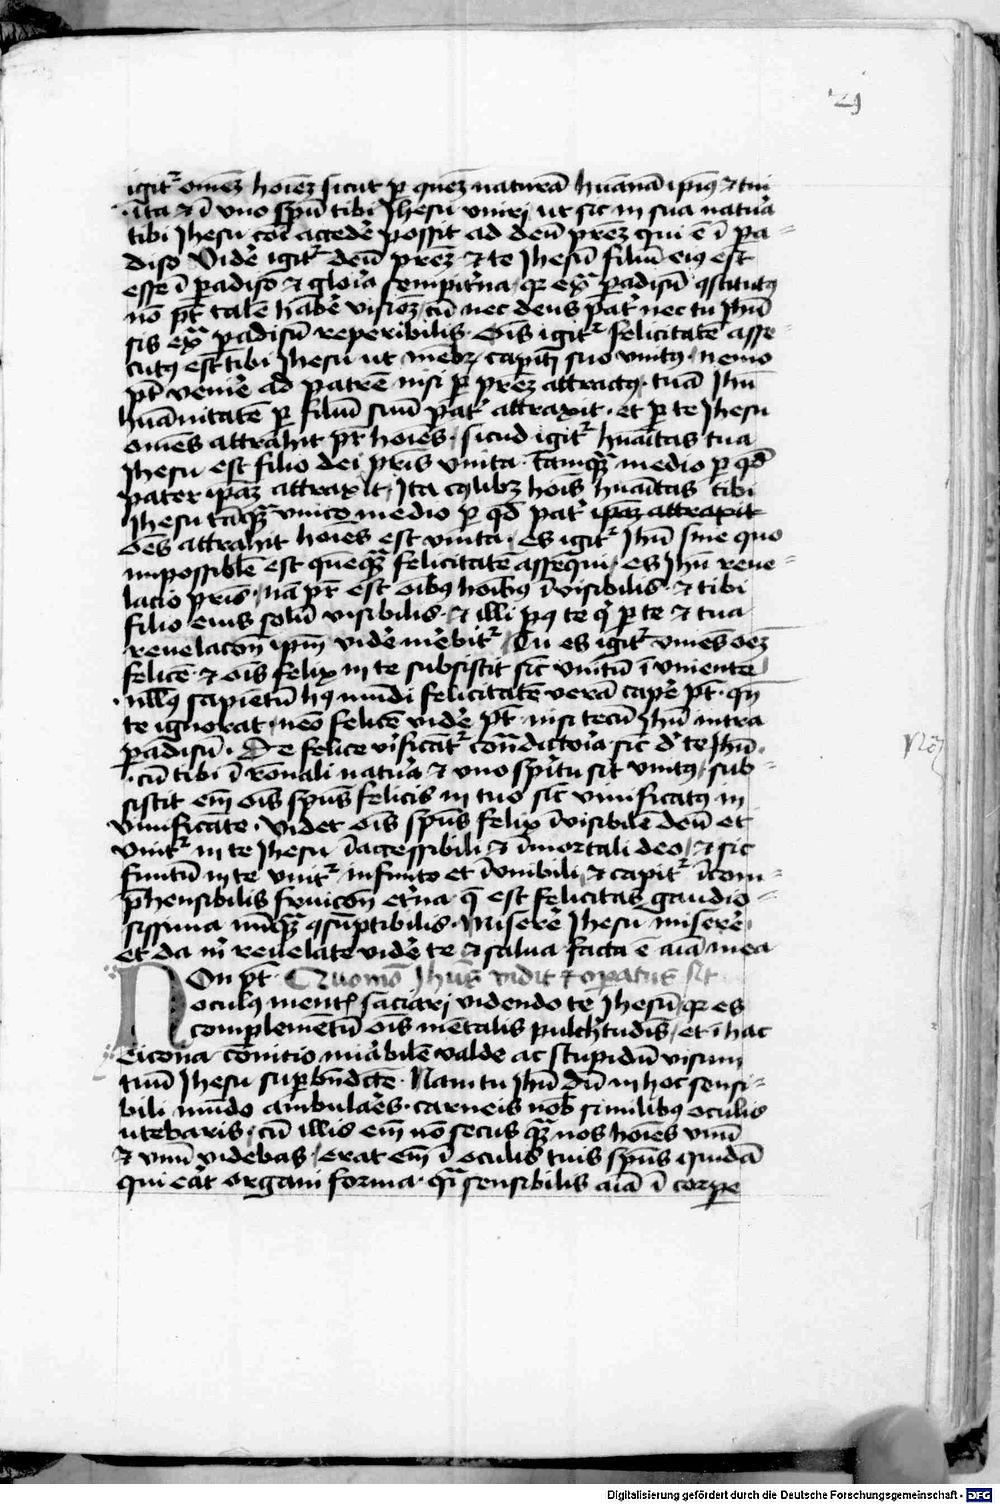 21
igit᷑ om̄eʒ hoi̅eʒ sicut p̱ queʒ naturā huānā ip̄iꝰ ⁊ tui
ita ⁊ ī vno sp̄u tibi Jhesu vniri ut sic in sua nat᷑a
tibi Jhesu cōi accede᷑ possit ad deū pr̄eʒ qui ē ī p̱a⸗
diso Vide᷑ igit᷑ deū pr̄eʒ ⁊ te Jhesū filiū eiꝰ est
esse ī p̱adiso ⁊ glo᷑ia sempit᷑na qꝛ ext᷑ p̱adisū ꝯstitutꝰ
nō pt̄ talē habe᷑ visioeʒ cū nec deus pat᷑ nec tu Jhū
sis ext᷑ p̱adisū reperibilis. Oīs igit᷑ felicitatē asse⸗
cutꝰ est tibi Jhesu ut mēbꝛ capiti suo vnitꝰ nemo
pt̄ veni᷑e ad patrē nisi p̱ pr̄eʒ attractꝰ. tuā Jhū
huānitatē p̱ filiū suū pat᷑ attraxit. et p̱ te Jhesu
om̄es attrahit pr̄ hoi̅es. sicud igit᷑ huāitas tua
Jhesu est filio dei pr̄is vnita. tamqᷓ medio p̱ qd̄
pater ip̄aʒ attraxit. Ita cꝰlibꝫ hoi̅s huāitas tibi
Jhesu tāqᷓ vnico medio p̱ qd̄ pat᷑ ip̄aʒ attraxit
oēs attrahit hoi̅es est vnita. Es igit᷑ Jhū sine quo
impossiblē est quēqᷓ felicitatē asseq̄ui. es Jhū reue⸗
lacio pr̄is. nā pr̄ est oībꝰ hoi̅bꝰ īvisibilis. ⁊ tibi
filio eius solū visibilis. ⁊ illi pꝰ te q̇ p̱ te ⁊ tua
reuelacōn ip̄m vide᷑ me᷑bit᷑. Tu es igit᷑ vniēs oēʒ
felicē. ⁊ oīs felix in te subsistit sic̄ vnitū ī vniente
nullꝰ sapiētū hꝰ mūdi felicitatē verā cape᷑ pt̄. qn̄
te ignorat. neō felicē vide᷑ pt̄ nisi tecū Jhū intra
p̱adisū. De felice v᷑ificāt᷑ cont᷑dictoria sic̄ d᷑ te Jhū.
cū tibi ī ronali nat᷑a ⁊ vno sp̄itu sit vnitꝰ sub⸗
sistit em̄ oīs sp̄us felicis in tuo sic̄ viuificatꝰ in
viuificāte. videt oīs sp̄us felix īvisibilē deū et
vnit᷑ in te Jhesu īaccessibili ⁊ īmortali deo. ⁊ sic
finitū in te vnit᷑ infinito et īvnibili ⁊ capit᷑ īcom⸗
p̄hensibilis fruicōn et᷑na. q̄ est felicitas gaudio⸗
sissima nūqᷓ ꝯsūptibilis. Misere᷑ Jhesu misere᷑
et da m᷑ reuelate vide᷑ te ⁊ salua facta ē aīa mea
Non pt̄ Quomō Jhūs vidit ⁊ op̱atus sit
oculꝰ mentꝭ saciari videndo te Jhesū qꝛ es
complementū oīs mētalis pulcʰtudīs. et ī hac
Eicona cōnitio mi᷑abilē valde ac stupidū visum
tuū Jhesu sup̱bn̄dcē. Nam tu Jhū dū in hoc sensi⸗
bili mūdo ambulares. carneis nob̄ similibꝰ oculis
utebaris. cū illis em̄ nō secus qᷓ nos hoi̅es vnū
⁊ vnū videbas. erat em̄ ī oculis tuis sp̄us quidā
qui eāt organi forma. qᷓ sensibilis aīa ī corpe
No᷑
Digitalisierung gefördert durch die Deutsche Forschungsgemeinschaft - DFG